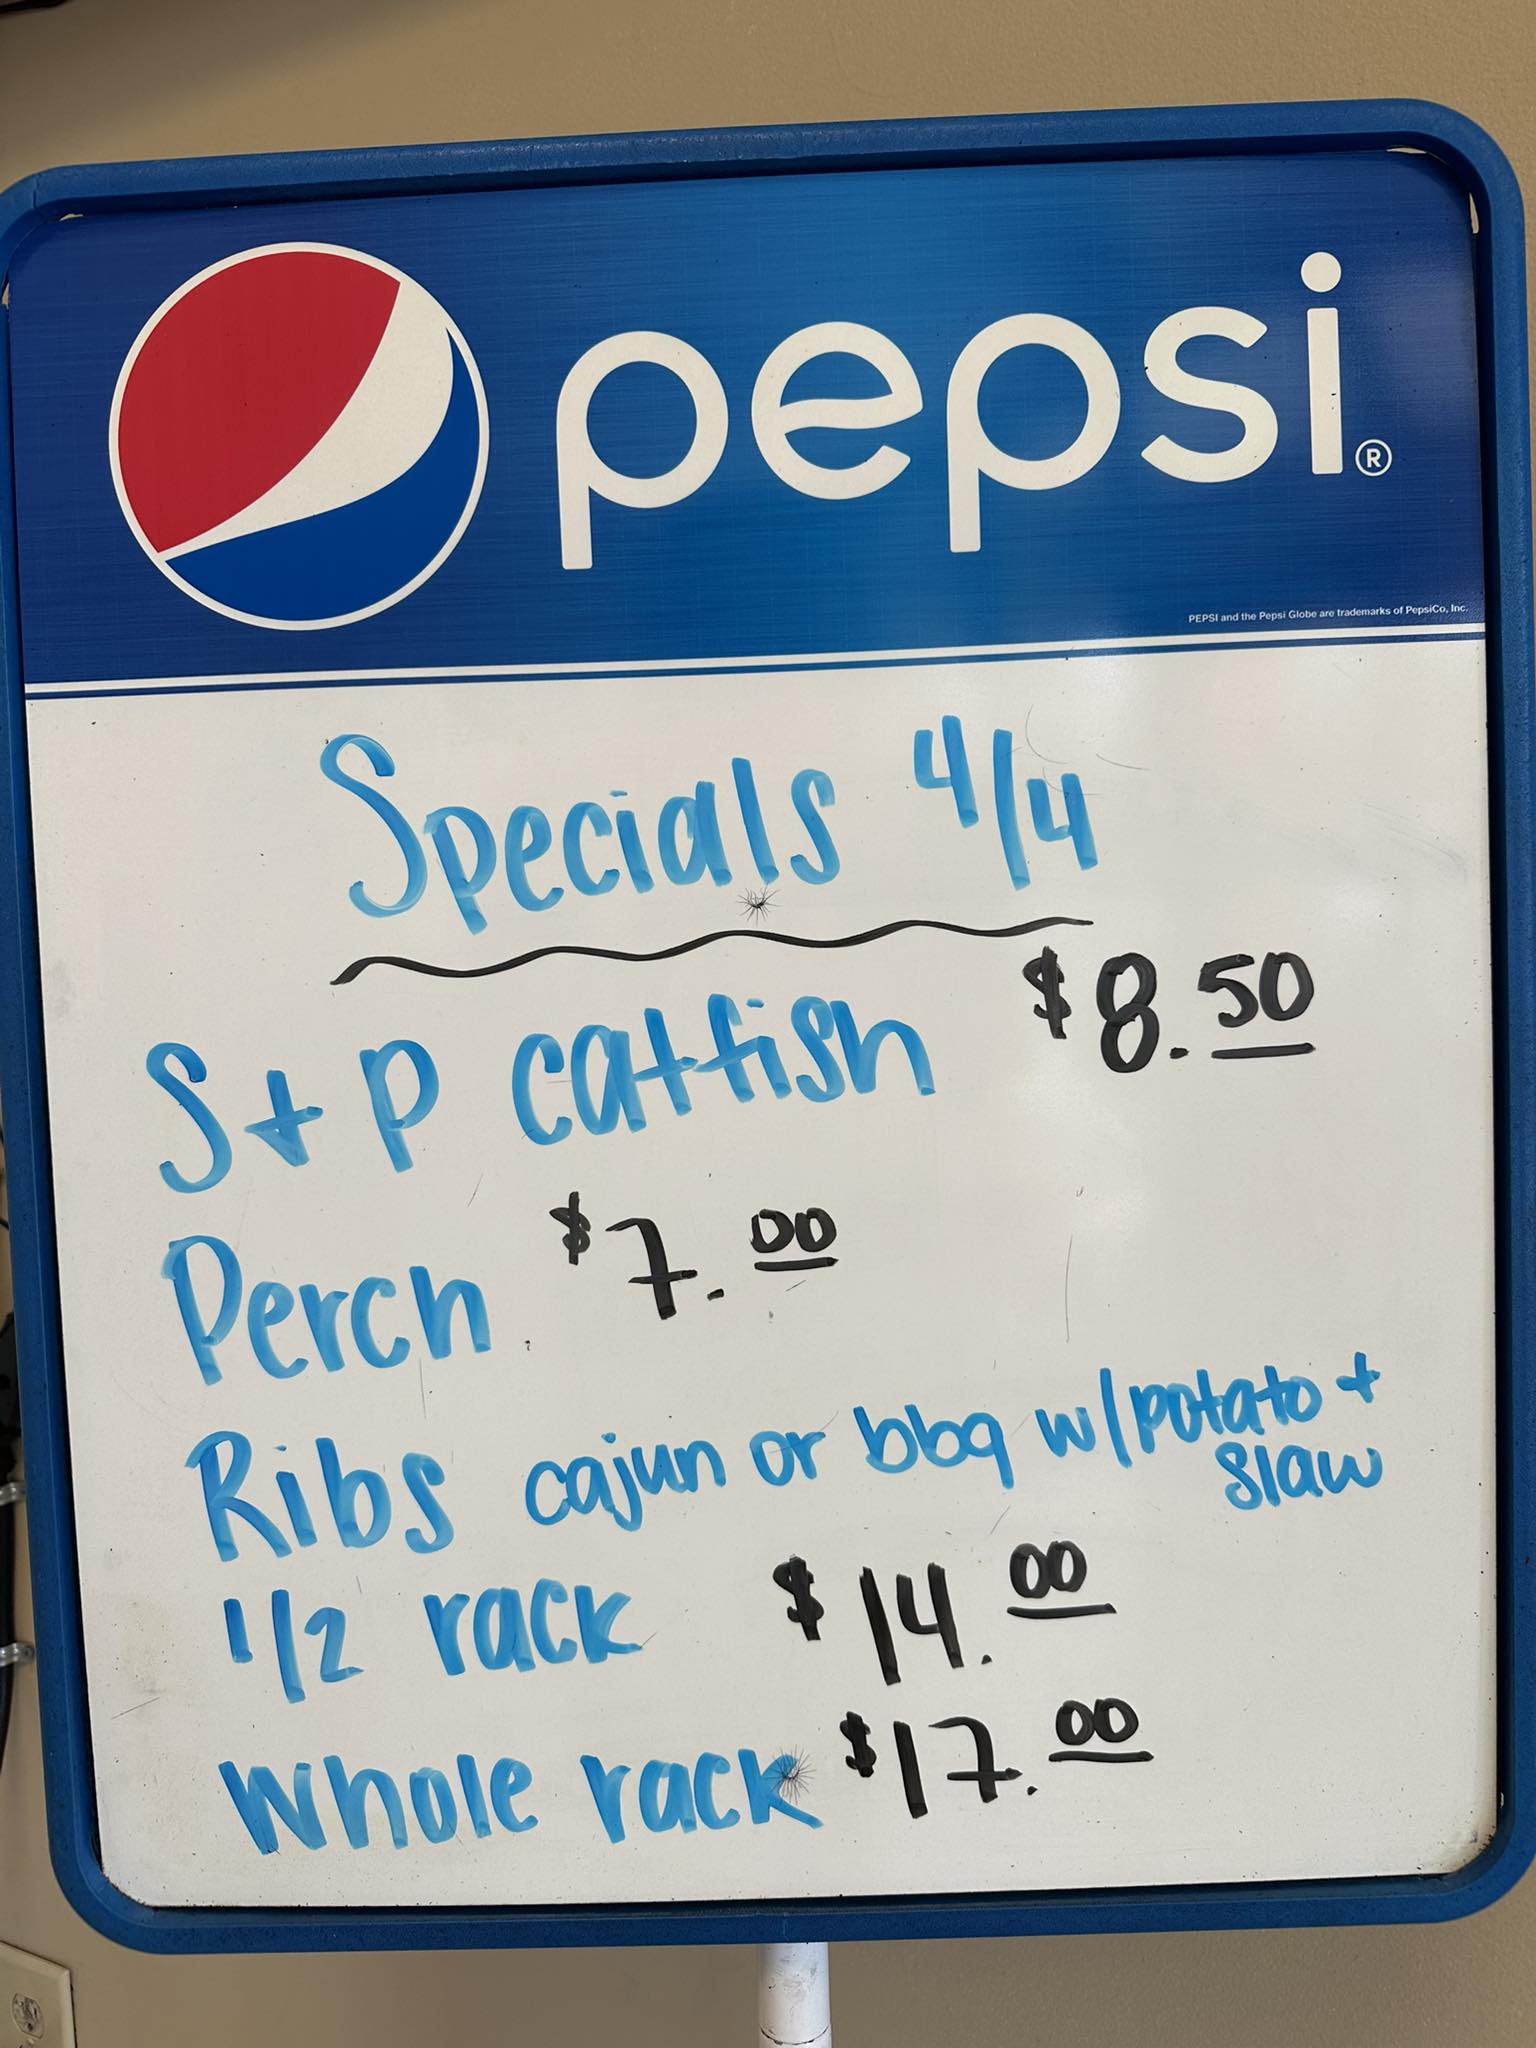 pepsi®
PEPSI and the Pepsi Globe are trademarks of PepsiCo, Inc.
Specials 4/4
S + P catfish $8.50
Perch $7.00
Ribs cajun or bbq w/potato +
slaw
1/2 rack $14.00
Whole rack $17.00